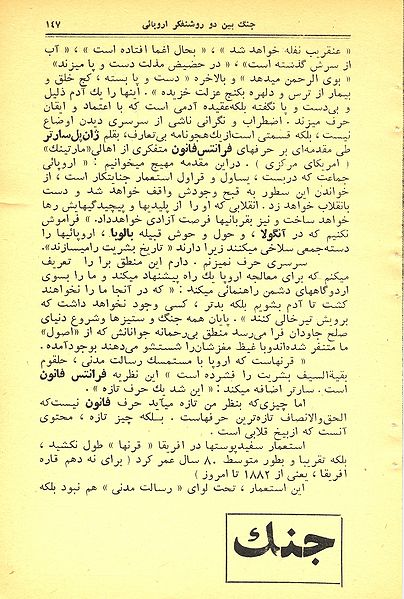 جنگ بین دو روشنفکر اروپائی
۱۴۷
« عنقریب نفله خواهد شد » ، « بحال اغما افتاده است » ، « آب
از سرش گذشته است» ، « در حضیض مذلت دست و پا میزند»
« بوی الرحمن میدهد » و بالاخره « دست و پا بسته ، کج خلق و
بیمار از ترس و دلهره بکنج عزلت خزیده » . اینها را یك آدم ذلیل
و بی‌دست و پا نگفته بلکه‌عقیده آدمی است که با اعتماد و ایقان
حرف میزند . اضطراب و نگرانی ناشی از سرسری دیدن اوضاع
نیست ، بلکه قسمتی است‌ازیك‌هجونامه بی‌تعارف، بقلم ژان‌پل‌سارتر
طی مقدمه‌ای بر حرفهای فرانتس‌فانون متفکری از اهالی«مارتینك»
( امریکای مرکزی ) . دراین مقدمه مهیج میخوانیم : « اروپائی
جماعت که دربست ، یساول و قراول استعمار جنایتکار است ، از
خواندن این سطور به قبح وجودش واقف خواهد شد و دست
بانقلاب خواهد زد . انقلابی که او را از پلیدیها و پیچیدگیهایش رها
خواهد ساخت و نیز بقربانیها فرصت آزادی خواهدداد.» فراموش
نکنیم که در آنگولا ، و حول و حوش قبیله بالوبا ، اروپائیها را
دسته‌جمعی سلاخی میکنند زیرا دارند « تاریخ بشریت رامیسازند».
سرسری حرف نمیزنم . دارم این منطق برا را تعریف
میکنم که برای معالجه اروپا یك راه پیشنهاد میکند و ما را بسوی
اردوگاههای دشمن راهنمائی میکند : « که در آنجا ما را نخواهند
کشت تا آدم بشویم بلکه بدتر ، کسی وجود نخواهد داشت که
برویش تیرخالی کنند » . پایان همه جنگ و ستیزها وشروع دنیای
صلح جاودان فرا می‌رسد منطق بی‌رحمانه جوانانی که از «اصول»
ما متنفر شده‌اندوبا غیظ مغزشان‌را شستشو می‌دهند بوجودآمده .
« قرنهاست که اروپا با مستمسك رسالت مدنی ، حلقوم
بقیةالسیف بشریت را فشرده است » این نظریه فرانتس فانون
است . سارتر اضافه میکند : « این شد یك حرف تازه » .
اما چیزی‌که بنظر من تازه میآید حرف فانون نیست‌که
الحق‌والانصاف تازه‌ترین حرفهاست . بلکه چیز تازه ، محتوی
آنست که ازبیخ قلابی است .
استعمار سفیدپوستها در افریقا « قرنها » طول نکشید ،
بلکه تقریبا و بطور متوسط ۸۰ سال عمر کرد ( برای نه دهم قاره
افریقا ، یعنی از ۱۸۸۲ تا امروز )
این استعمار ، تحت لوای « رسالت مدنی » هم نبود بلکه
جنگ